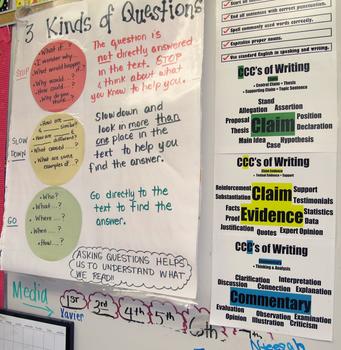 3 Kinds of Questions
STOP
What if...
I wonder why
What would happen
Why would ...?
How could ...?
Why do you
The question is
not directly answered
in the text. STOP
& think about what
you know to help you.
SLOW
DOWN
How are ... similar?
How are ... different?
What caused ...?
What are some
examples of...?
Slow down and
look in more than
one place in the
text to help you
find the answer.
GO
Who?
What ...?
Where ...?
When ...?
How...?
Go directly to the
text to find the
answer.
ASKING QUESTIONS HELPS
US TO UNDERSTAND WHAT
WE READ
Media
1st
2nd
4th
5th
6th
7th
Xavier
End all sentences with correct punctuation.
Spell commonly used words correctly.
Capitalize proper nouns.
Use standard English in speaking and writing.
CCC's of Writing
Claim
= Central Claim = Thesis
= Supporting Claim = Topic Sentence
Stand
Allegation Assertion
Proposal Position
Thesis Claim Declaration
Main Idea Hypothesis
Case
CCC's of Writing
Claim Evidence
= Textual Evidence = Support
Reinforcement Claim Support
Substantiation Testimonials
Facts Evidence Statistics
Proof Data
Justification Quotes Expert Opinion
CCC's of Writing
Commentary
= Thinking & Analysis
Clarification Interpretation
Discussion Connection Explanation
Commentary
Evaluation Observation Examination
Opinion Illustration Criticism